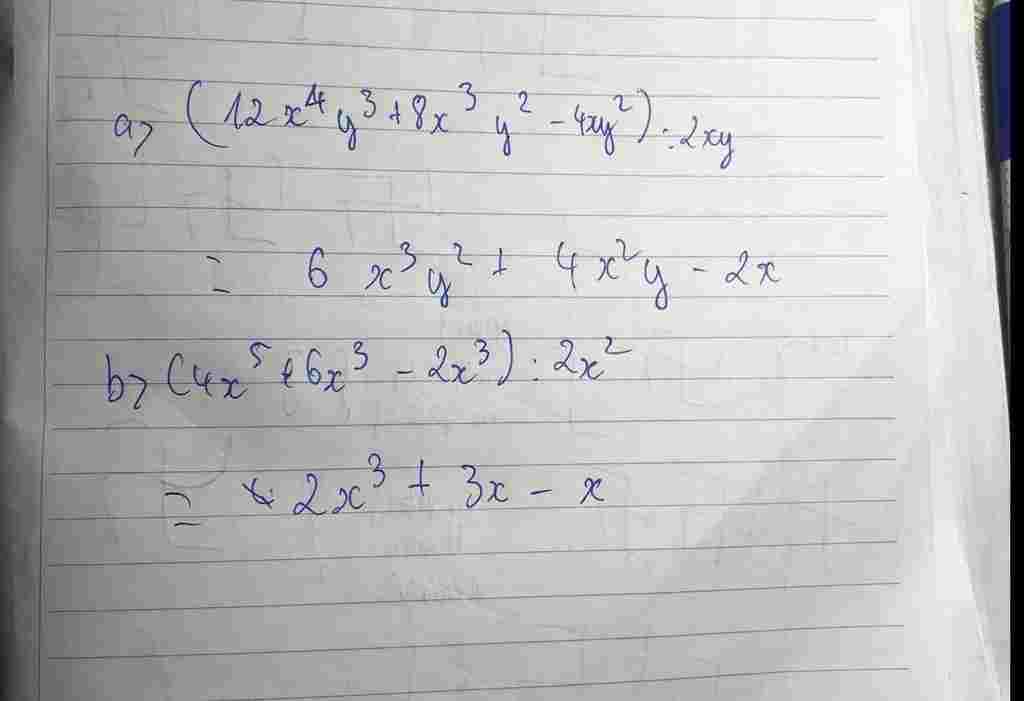 a> (12x⁴y³ + 8x³y² - 4xy²) : 2xy
= 6x³y² + 4x²y - 2x
b> (4x⁵ + 6x³ - 2x³) : 2x²
= 2x³ + 3x - x